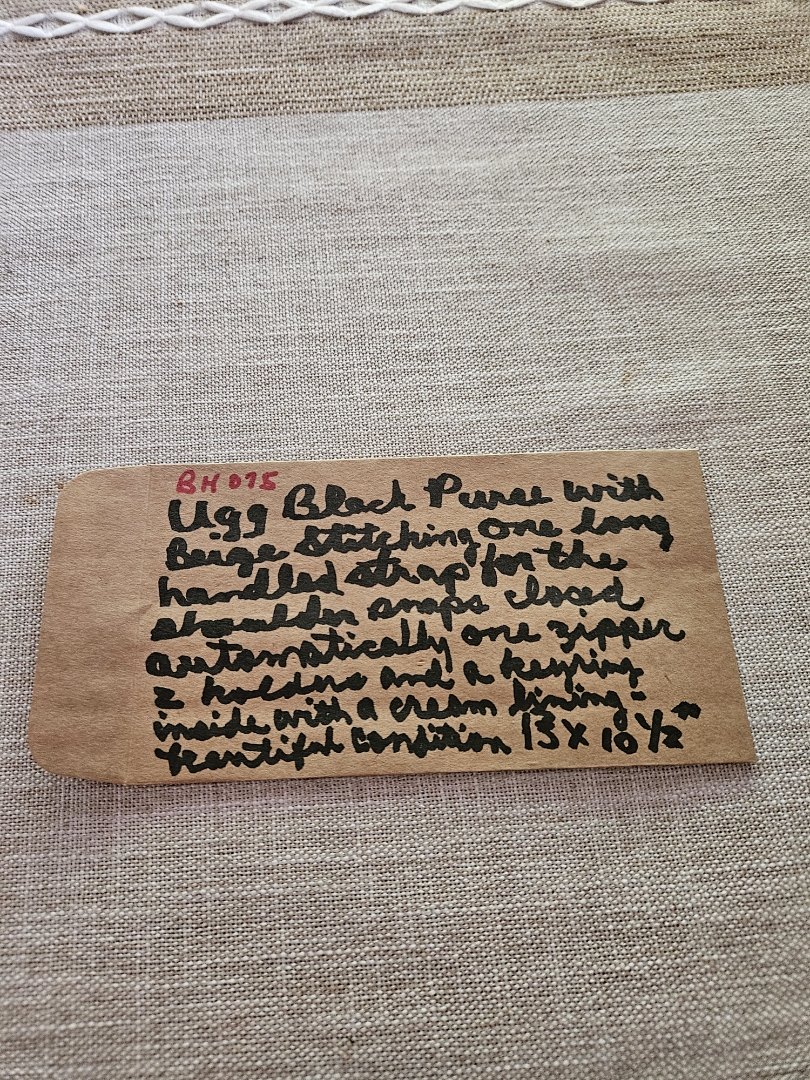 BH075
Ugg Black Purse with
Beige Stitching one long
handled strap for the
shoulder snaps closed
automatically one zipper
2 holders and a keyring
inside with a cream lining-
beautiful condition 13 X 10 1/2"